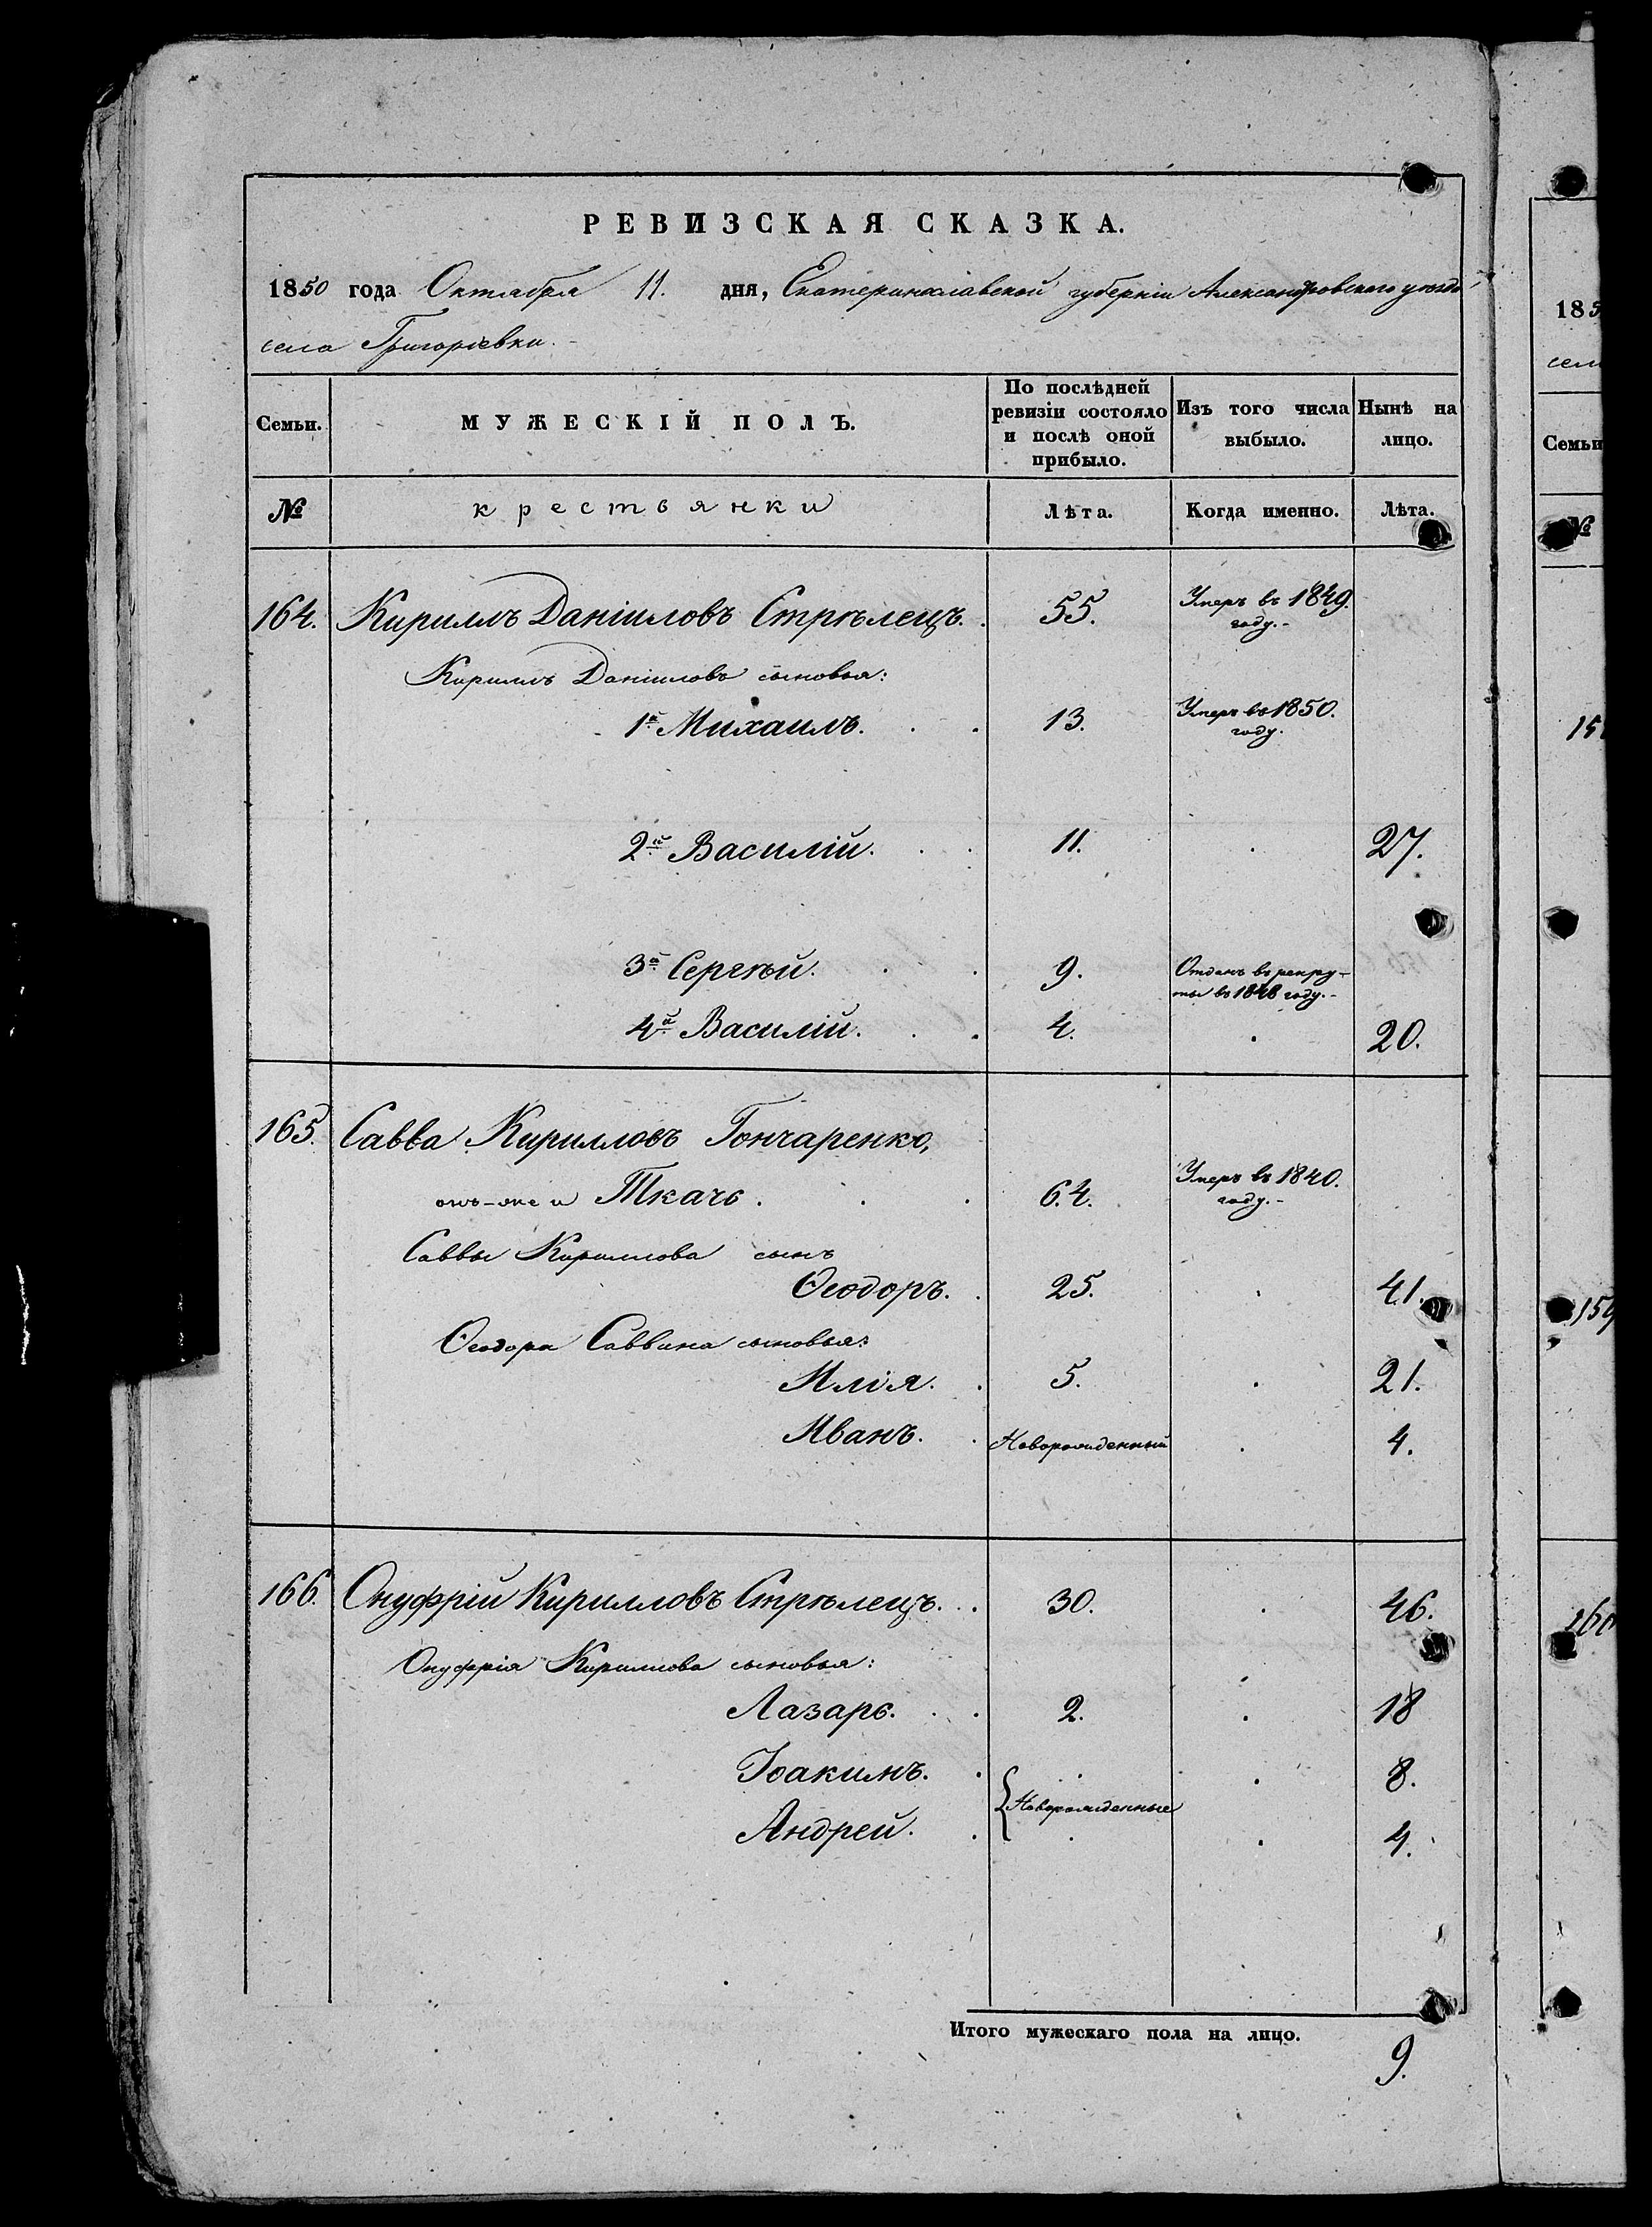 РЕВИЗСКАЯ СКАЗКА.
1850 года Октября 11. дня, Екатеринославской губерніи Александровскаго уѣзда
села Григорьевки.
Семьи. МУЖЕСКІЙ ПОЛЪ. По послѣдней ревизіи состояло и послѣ оной прибыло. Изъ того числа выбыло. Нынѣ на лицо.
№ крестьянки Лѣта. Когда именно. Лѣта.
164. Кириллъ Даніиловъ Стрѣлецъ. 55. Умеръ въ 1849. году.
Кириллъ Даніиловъ сыновья:
1й Михаилъ. 13. Умеръ въ 1850. году.
2й Василій. 11. 27.
3й Сергѣй. 9. Отданъ въ рекруты въ 1848 году.
4й Василій. 4. 20.
165. Савва Кирилловъ Гончаренко,
онъ-же и Ткачь. 64. Умеръ въ 1840. году.
Саввы Кириллова сынъ
Ѳеодоръ. 25. 41.
Ѳеодора Саввина сыновья:
Илія. 5. 21.
Иванъ. Новорожденный 4.
166. Онуфрій Кирилловъ Стрѣлецъ. 30. 46.
Онуфрія Кириллова сыновья:
Лазарь. 2. 18
Іоакимъ. 8.
Новорожденные
Андрей. 4.
Итого мужескаго пола на лицо.
9.
185
сел
Семьи
№
15
159
160